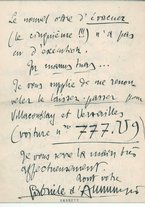 Le nouvel ordre d'évacuer
(le cinquième !!!) n'a pas
eu d'exécution.
Je
Je vous supplie de me renou
veler le laissez-passer pour
Villacoublay et Versailles
(voiture n° 777.U9)
Je vous serre la main très
affectueusement.
votre
Gabriele d'Annunzio